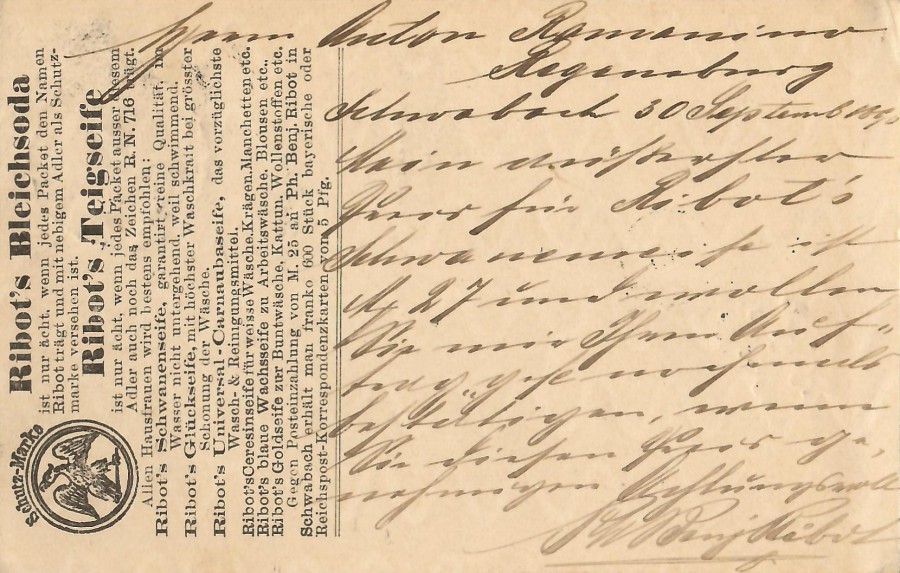 Ribot's Bleichsoda
ist nur ächt, wenn jedes Packet den Namen
Ribot trägt und mit nebigem Adler als Schutz-
marke versehen ist.
Ribot's Teigseife
ist nur ächt, wenn jedes Packet ausser diesem
Adler auch noch das Zeichen R. N. 716 trägt.
Allen Hausfrauen wird bestens empfolen:
Ribot's Schwanenseife, garantirt reine Qualität, im
Wasser nicht untergehend, weil schwimmend.
Ribot's Glückseife, mit höchster Waschkraft bei grösster
Schonung der Wäsche.
Ribot's Universal-Carnaubaseife, das vorzüglichste
Wasch- & Reinigungsmittel.
Ribot's Ceresinseife für weisse Wäsche, Krägen, Manchetten etc.
Ribot's blaue Wachsseife zu Arbeitswäsche, Blousen etc..
Ribot's Goldseife zur Buntwäsche, Kattun, Wollenstoffen etc.
Gegen Posteinzahlung von M. 25 an Ph. Benj. Ribot in
Schwabach erhält man franko 600 Stück bayerische oder
Reichspost-Korrespondenzkarten von 5 Pfg.
Schutz-Marke
Herrn Anton Romanino
Regensburg
Schwabach 30 Septemb
Mein äußerster
Preis für Ribot's
Schwanenseife ist
M 27 und wollen
Sie mir Ihren Auf-
trag gefl nochmals
bestätigen, wenn
Sie diesen Preis ge-
nehmigen Achtungsvoll
Ph Benj Ribot